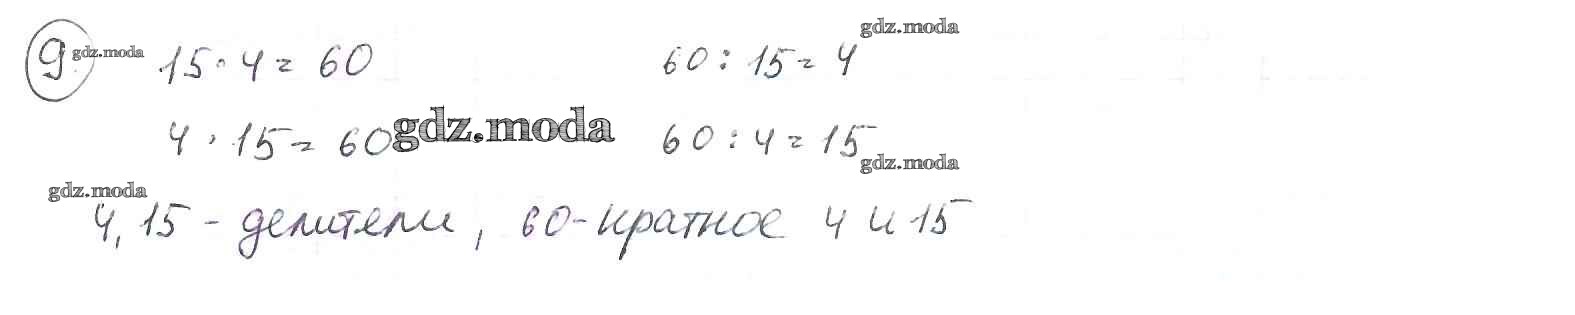 gdz.moda
9 gdz.moda 15 · 4 = 60 60 : 15 = 4
4 · 15 = 60 gdz.moda 60 : 4 = 15
gdz.moda gdz.moda
4, 15 - делители, 60 - кратное 4 и 15